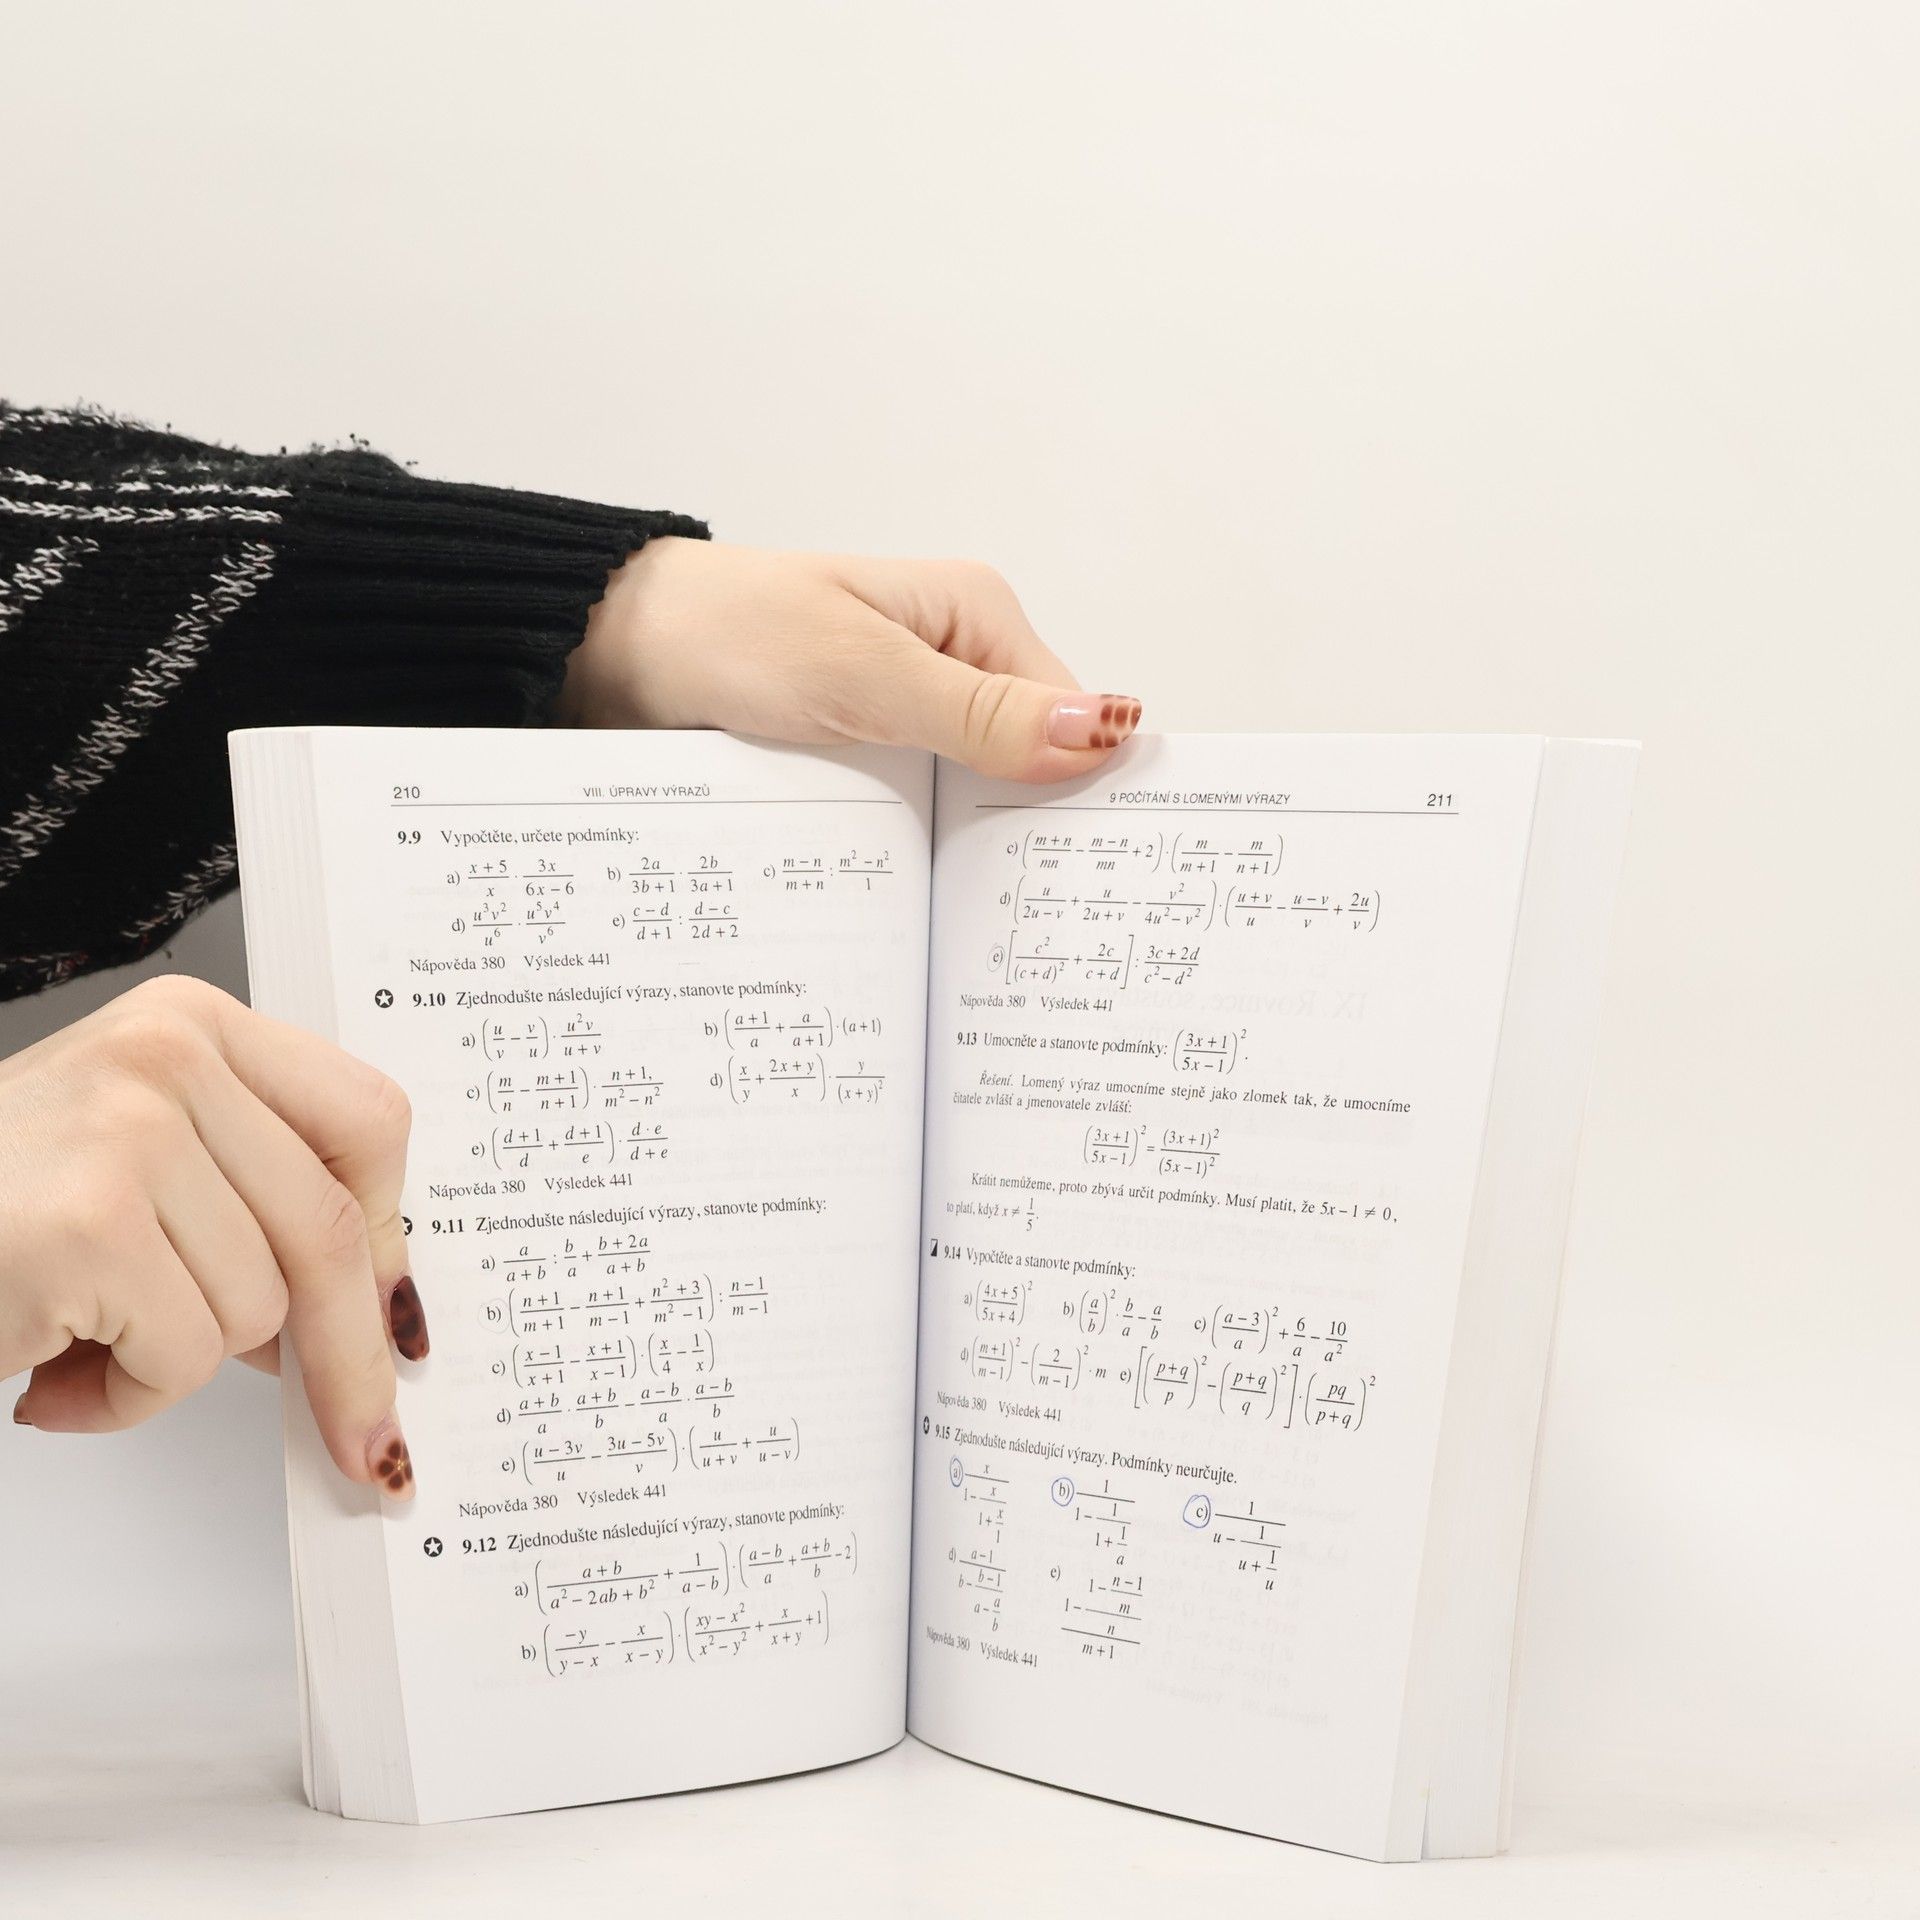 210 VIII. ÚPRAVY VÝRAZŮ
9.9 Vypočtěte, určete podmínky:
a) \frac{x+5}{x} · \frac{3x}{6x-6} b) \frac{2a}{3b+1} · \frac{2b}{3a+1} c) \frac{m-n}{m+n} : \frac{m^2-n^2}{1}
d) \frac{u^3v^2}{u^6} · \frac{u^5v^4}{v^6} e) \frac{c-d}{d+1} : \frac{d-c}{2d+2}
Nápověda 380 Výsledek 441
9.10 Zjednodušte následující výrazy, stanovte podmínky:
a) (\frac{u}{v} - \frac{v}{u}) · \frac{u^2v}{u+v} b) (\frac{a+1}{a} + \frac{a}{a+1}) · (a+1)
c) (\frac{m}{n} - \frac{m+1}{n+1}) · \frac{n+1,}{m^2-n^2} d) (\frac{x}{y} + \frac{2x+y}{x}) · \frac{y}{(x+y)^2}
e) (\frac{d+1}{d} + \frac{d+1}{e}) · \frac{d·e}{d+e}
Nápověda 380 Výsledek 441
9.11 Zjednodušte následující výrazy, stanovte podmínky:
a) \frac{a}{a+b} : \frac{b}{a} + \frac{b+2a}{a+b}
b) (\frac{n+1}{m+1} - \frac{n+1}{m-1} + \frac{n^2+3}{m^2-1}) : \frac{n-1}{m-1}
c) (\frac{x-1}{x+1} - \frac{x+1}{x-1}) · (\frac{x}{4} - \frac{1}{x})
d) \frac{a+b}{a} · \frac{a+b}{b} - \frac{a-b}{a} · \frac{a-b}{b}
e) (\frac{u-3v}{u} - \frac{3u-5v}{v}) · (\frac{u}{u+v} + \frac{u}{u-v})
Nápověda 380 Výsledek 441
9.12 Zjednodušte následující výrazy, stanovte podmínky:
a) (\frac{a+b}{a^2-2ab+b^2} + \frac{1}{a-b}) · (\frac{a-b}{a} + \frac{a+b}{b} - 2)
b) (\frac{-y}{y-x} - \frac{x}{x-y}) · (\frac{xy-x^2}{x^2-y^2} + \frac{x}{x+y} + 1)
9 POČÍTÁNÍ S LOMENÝMI VÝRAZY 211
c) (\frac{m+n}{mn} - \frac{m-n}{mn} + 2) · (\frac{m}{m+1} - \frac{m}{n+1})
d) (\frac{u}{2u-v} + \frac{u}{2u+v} - \frac{v^2}{4u^2-v^2}) · (\frac{u+v}{u} - \frac{u-v}{v} + \frac{2u}{v})
e) [\frac{c^2}{(c+d)^2} + \frac{2c}{c+d}] : \frac{3c+2d}{c^2-d^2}
Nápověda 380 Výsledek 441
9.13 Umocněte a stanovte podmínky: (\frac{3x+1}{5x-1})^2.
Řešení. Lomený výraz umocníme stejně jako zlomek tak, že umocníme
čitatele zvlášť a jmenovatele zvlášť:
(\frac{3x+1}{5x-1})^2 = \frac{(3x+1)^2}{(5x-1)^2}
Krátit nemůžeme, proto zbývá určit podmínky. Musí platit, že 5x – 1 ≠ 0,
to platí, když x ≠ \frac{1}{5}.
9.14 Vypočtěte a stanovte podmínky:
a) (\frac{4x+5}{5x+4})^2 b) (\frac{a}{b})^2 · \frac{b}{a} - \frac{a}{b} c) (\frac{a-3}{a})^2 + \frac{6}{a} - \frac{10}{a^2}
d) (\frac{m+1}{m-1})^2 - (\frac{2}{m-1})^2 · m e) [(\frac{p+q}{p})^2 - (\frac{p+q}{q})^2] · (\frac{pq}{p+q})^2
Nápověda 380 Výsledek 441
9.15 Zjednodušte následující výrazy. Podmínky neurčujte.
a) \frac{x}{1-\frac{x}{1+\frac{x}{1}}} b) \frac{1}{1-\frac{1}{1+\frac{1}{a}}} c) \frac{1}{u-\frac{1}{u+\frac{1}{u}}}
d) \frac{a-1}{b-\frac{b-1}{a-\frac{a}{b}}} e) \frac{1-\frac{1-\frac{n-1}{m}}{n}}{m+1}
Nápověda 380 Výsledek 441